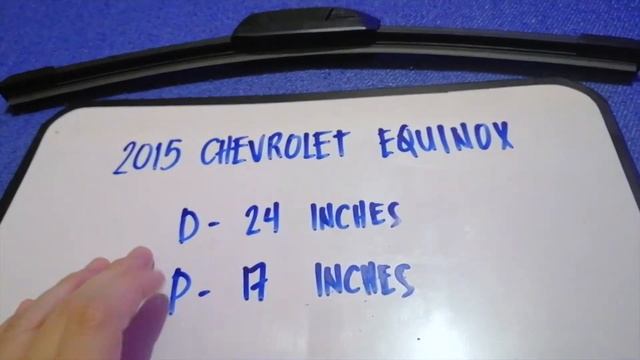 2015 CHEVROLET EQUINOX
D- 24 INCHES
P- 17 INCHES